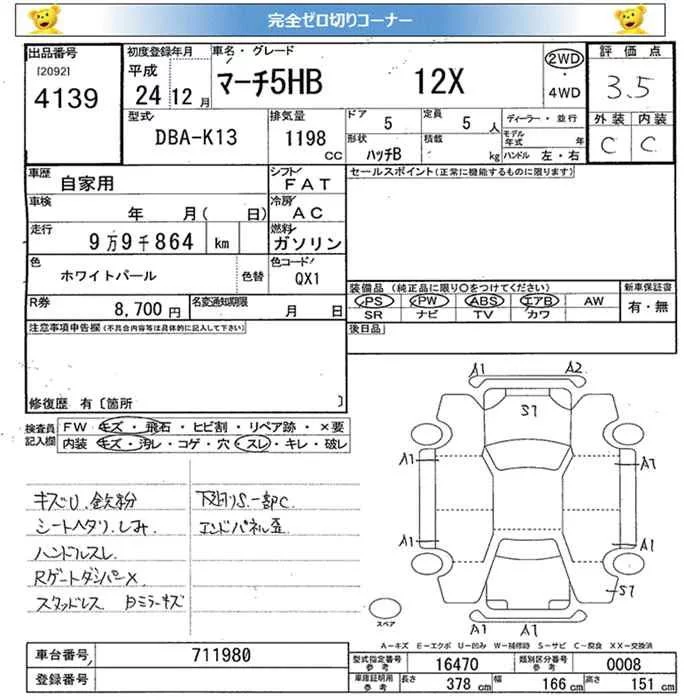 完全ゼロ切りコーナー
出品番号
[2092]
4139
初度登録年月
平成
24 12月
車名・グレード
マーチ5HB 12X
2WD
・
4WD
評価点
3.5
外装 内装
C C
型式
DBA-K13
排気量
1198
cc
ドア
5
定員
5 人
形状
ハッチB
積載
kg
ディーラー・並行
モデル年式 年
ハンドル 左・右
車歴
自家用
シフト
FAT
車検
年 月( 日)
冷房
AC
走行
9万9千864 km
燃料
ガソリン
色
ホワイトパール
色替
色コード
QX1
R券
8,700円
名変通知期限
月 日
セールスポイント(正常に機能するものに限ります)
装備品(純正品に限り○をつけてください)
新車保証書
PS PW ABS エアB AW
SR ナビ TV カワ
有・無
後日品
注意事項申告欄(不具合内容等は具体的に記入して下さい)
修復歴 有〔箇所 〕
検査員記入欄
FW キズ・飛石・ヒビ割・リペア跡・×要
内装 キズ・汚レ・コゲ・穴・スレ・キレ・破レ
キズU.鉄粉
シートヘタリ.しみ.
ハンドルスレ.
Rゲートダンパー×
スタッドレス Bミラーキズ
下廻りS.一部C.
エンドパネル歪
A1 A2
S1
A1 A1
A1 A1
S1
A1 A1
スペア
A-キズ E-エクボ U-凹み W-補修跡 S-サビ C-腐食 XX-交換済
車台番号
711980
登録番号
型式指定番号
参考
16470
類別区分番号
参考
0008
車庫証明用
参考
長さ 378 cm
幅 166 cm
高さ 151 cm